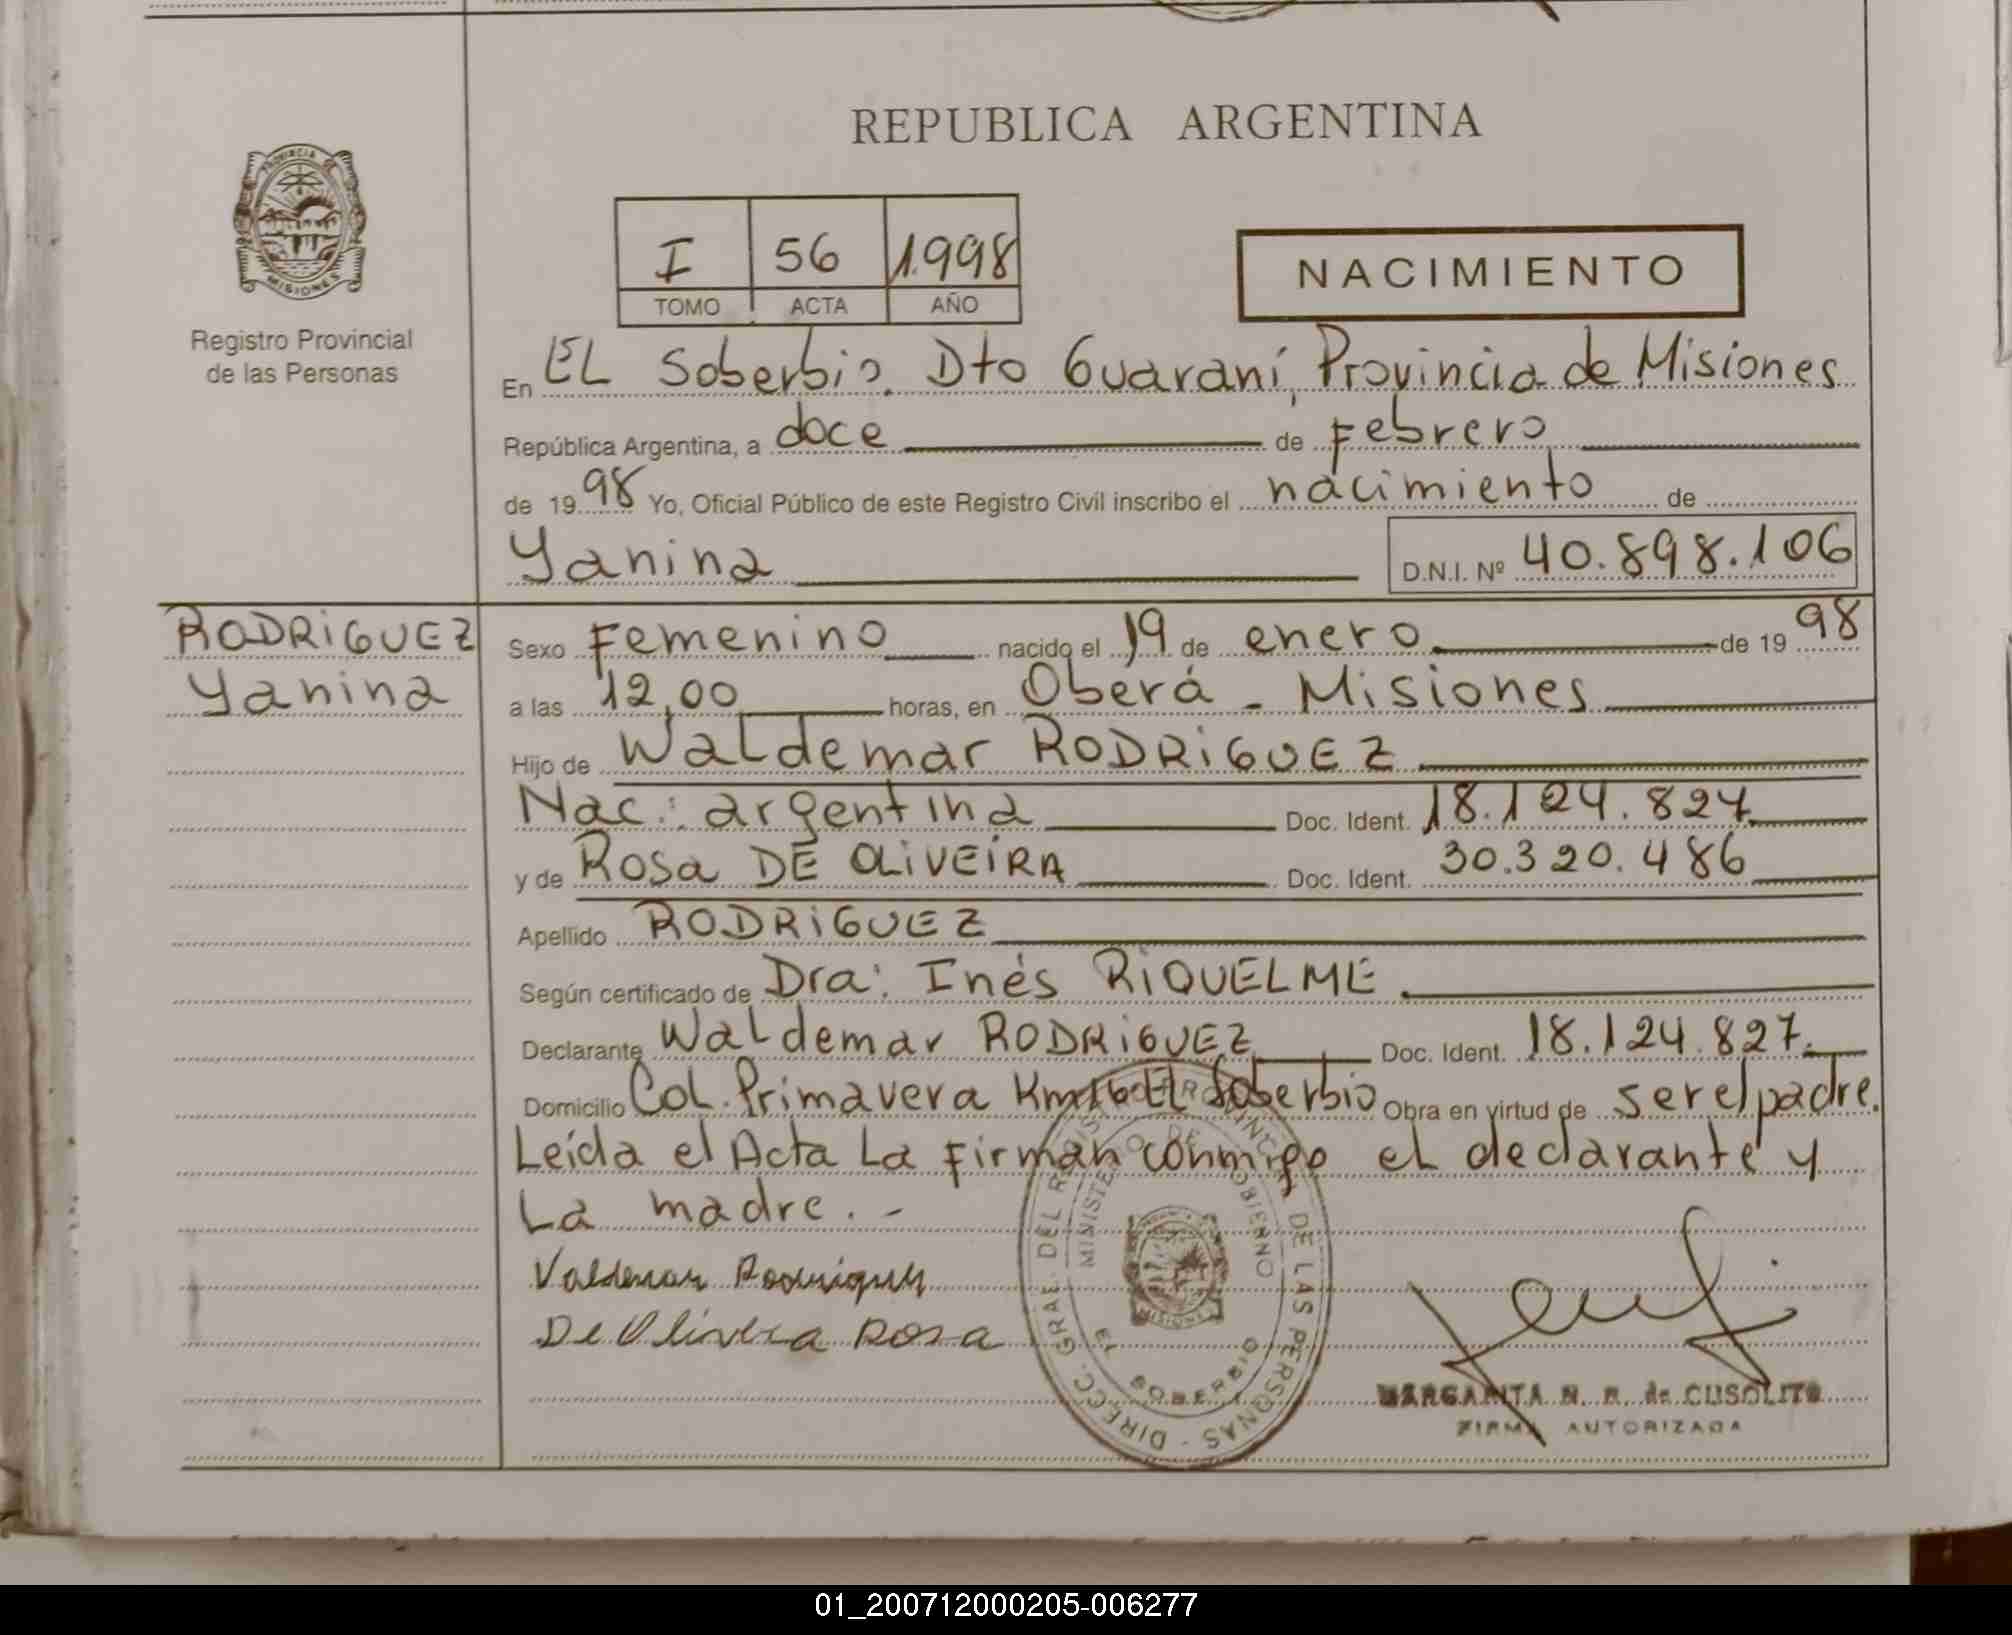 REPUBLICA ARGENTINA
PROVINCIA DE
MISIONES
Registro Provincial
de las Personas
I 56 1.998
TOMO ACTA AÑO
NACIMIENTO
En EL Soberbio. Dto Guaraní, Provincia de Misiones
República Argentina, a doce de Febrero
de 1998 Yo, Oficial Público de este Registro Civil inscribo el nacimiento de
Yanina D.N.I. Nº 40.898.106
RODRiGUEZ
Yanina
Sexo Femenino nacido el 19 de enero de 1998
a las 12,00 horas, en Oberá - Misiones
Hijo de Waldemar RODRiGUEZ
Nac.: argentina Doc. Ident. 18.124.827
y de Rosa DE OLiVEiRA Doc. Ident. 30.320.486
Apellido RODRiGUEZ
Según certificado de Dra: Inés RiQUELME
Declarante Waldemar RODRiGUEZ Doc. Ident. 18.124.827.
Domicilio Col. Primavera Km16 EL Soberbio Obra en virtud de ser el padre.
Leída el Acta La Firman conmigo el declarante y
La madre. -
Valdemar Rodriguez
De Oliveira Rosa
DIRECC. GRAL. DEL REGISTRO PROVINCIAL DE LAS PERSONAS -
MINISTERIO DE GOBIERNO
MISIONES
EL SOBERBIO
MARGARITA N. R. de CUSOLITO
FIRMA AUTORIZADA
01_200712000205-006277